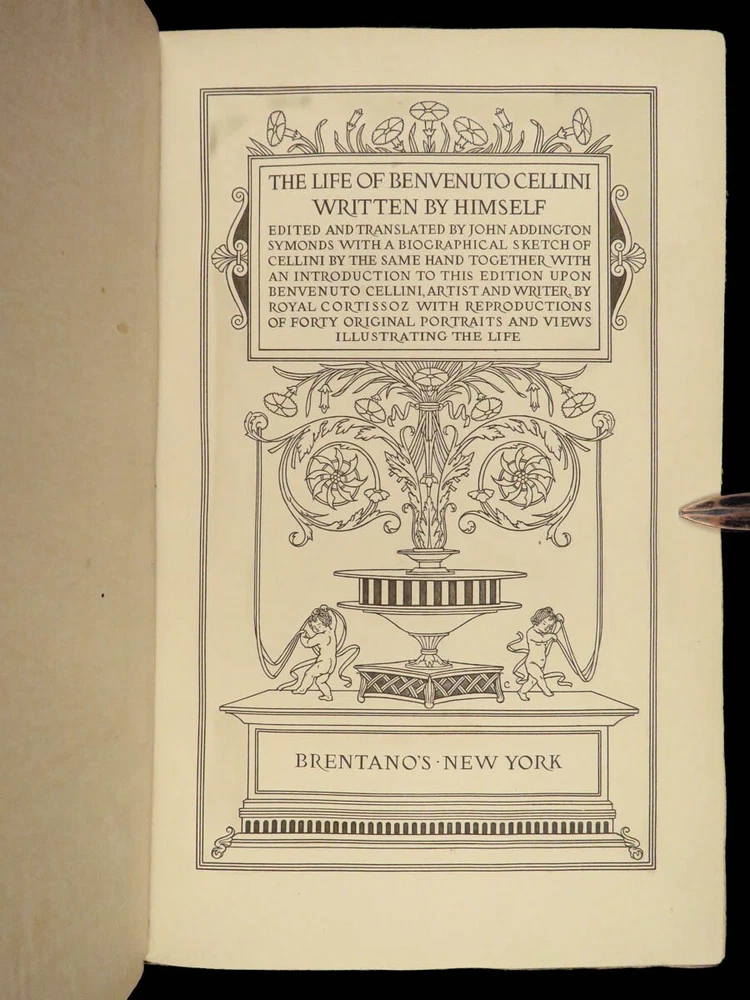 THE LIFE OF BENVENUTO CELLINI
WRITTEN BY HIMSELF
EDITED AND TRANSLATED BY JOHN ADDINGTON
SYMONDS WITH A BIOGRAPHICAL SKETCH OF
CELLINI BY THE SAME HAND TOGETHER WITH
AN INTRODUCTION TO THIS EDITION UPON
BENVENUTO CELLINI, ARTIST AND WRITER, BY
ROYAL CORTISSOZ WITH REPRODUCTIONS
OF FORTY ORIGINAL PORTRAITS AND VIEWS
ILLUSTRATING THE LIFE
C
BRENTANO'S · NEW YORK